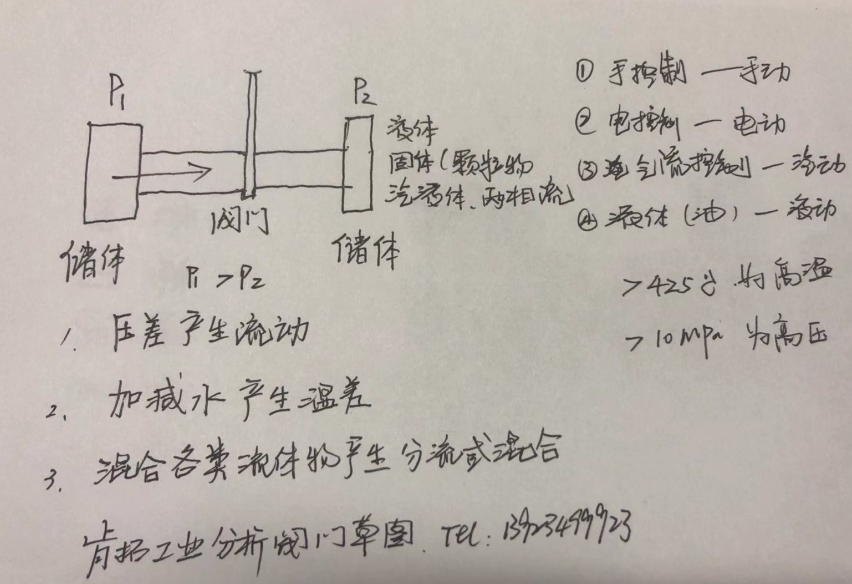 P1
P2
阀门
储体
储体
P1 > P2
液体
固体(颗粒物
汽液体、两相流)
① 手控制 — 手动
② 电控制 — 电动
③ 气流控制 — 汽动
④ 液体(油) — 液动
>425℃ 为高温
>10MPa 为高压
1. 压差产生流动
2. 加减水产生温差
3. 混合各类流体物产生分流或混合
肯拓工业分析阀门草图. TEL: 13923499923